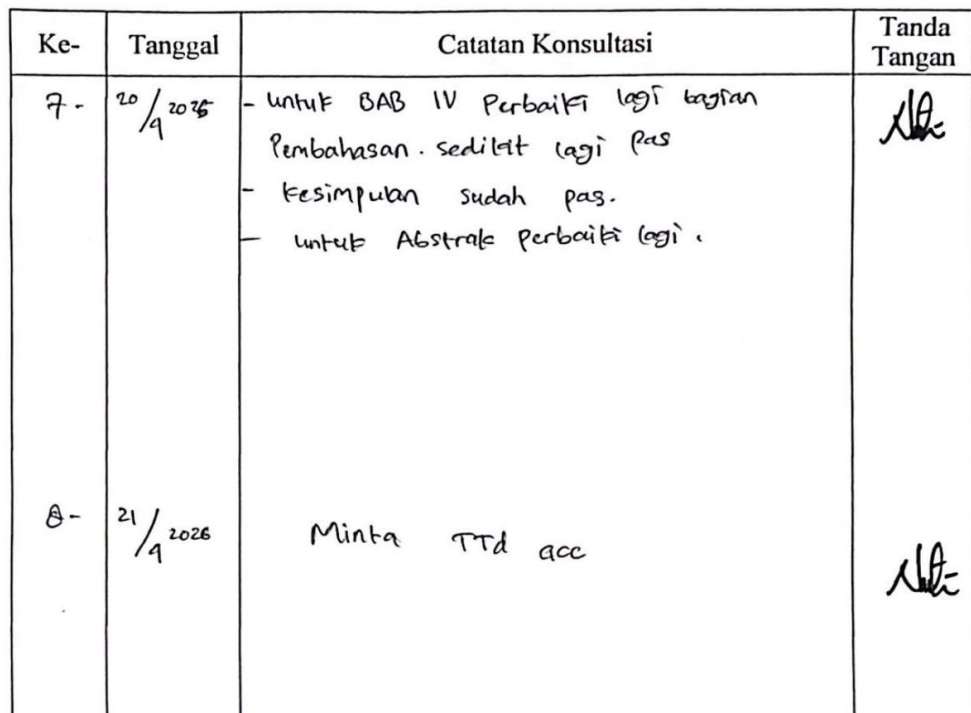 Ke- Tanggal Catatan Konsultasi Tanda Tangan
7 - 20/4 2026 - untuk BAB IV Perbaiki lagi bagian
Pembahasan. sedikit lagi pas
- kesimpulan sudah pas.
- untuk Abstrak perbaiki lagi.
8 - 21/4 2026 Minta TTd acc